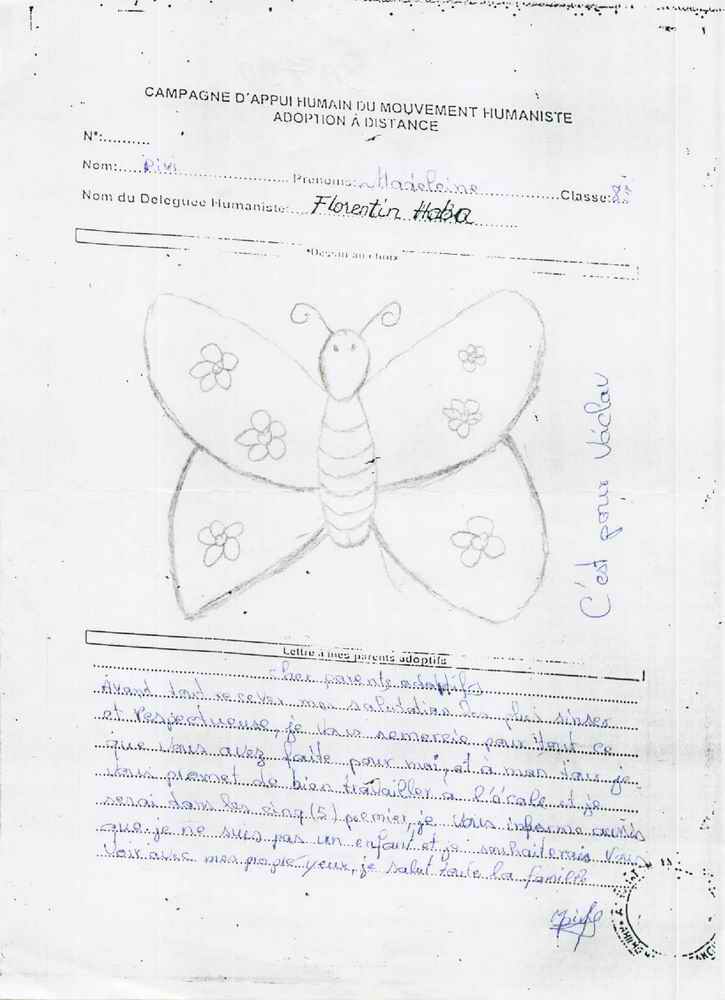 CAMPAGNE D'APPUI HUMAIN DU MOUVEMENT HUMANISTE
ADOPTION À DISTANCE
N°:..........
Nom: Pivi Prenoms: Madeleine Classe: 8è
Nom du Deleguee Humaniste: Florentin Haba
*Dessin au choix
C'est pour Václav
Lettre à mes parents adoptifs
cher parents adoptifs
Avant tout recever mes salutations les plus sinser
et respectueuse, je vous remercie pour tout ce
que vous avez faite pour moi, et à mon tour je
vous promet de bien travailler a l'école et je
serai dans les cinq (5) premier, je vous informe aussi
que je ne suis pas un enfant et je souhaiterais vous
voir avec mes propre yeux, je salut toute la famille